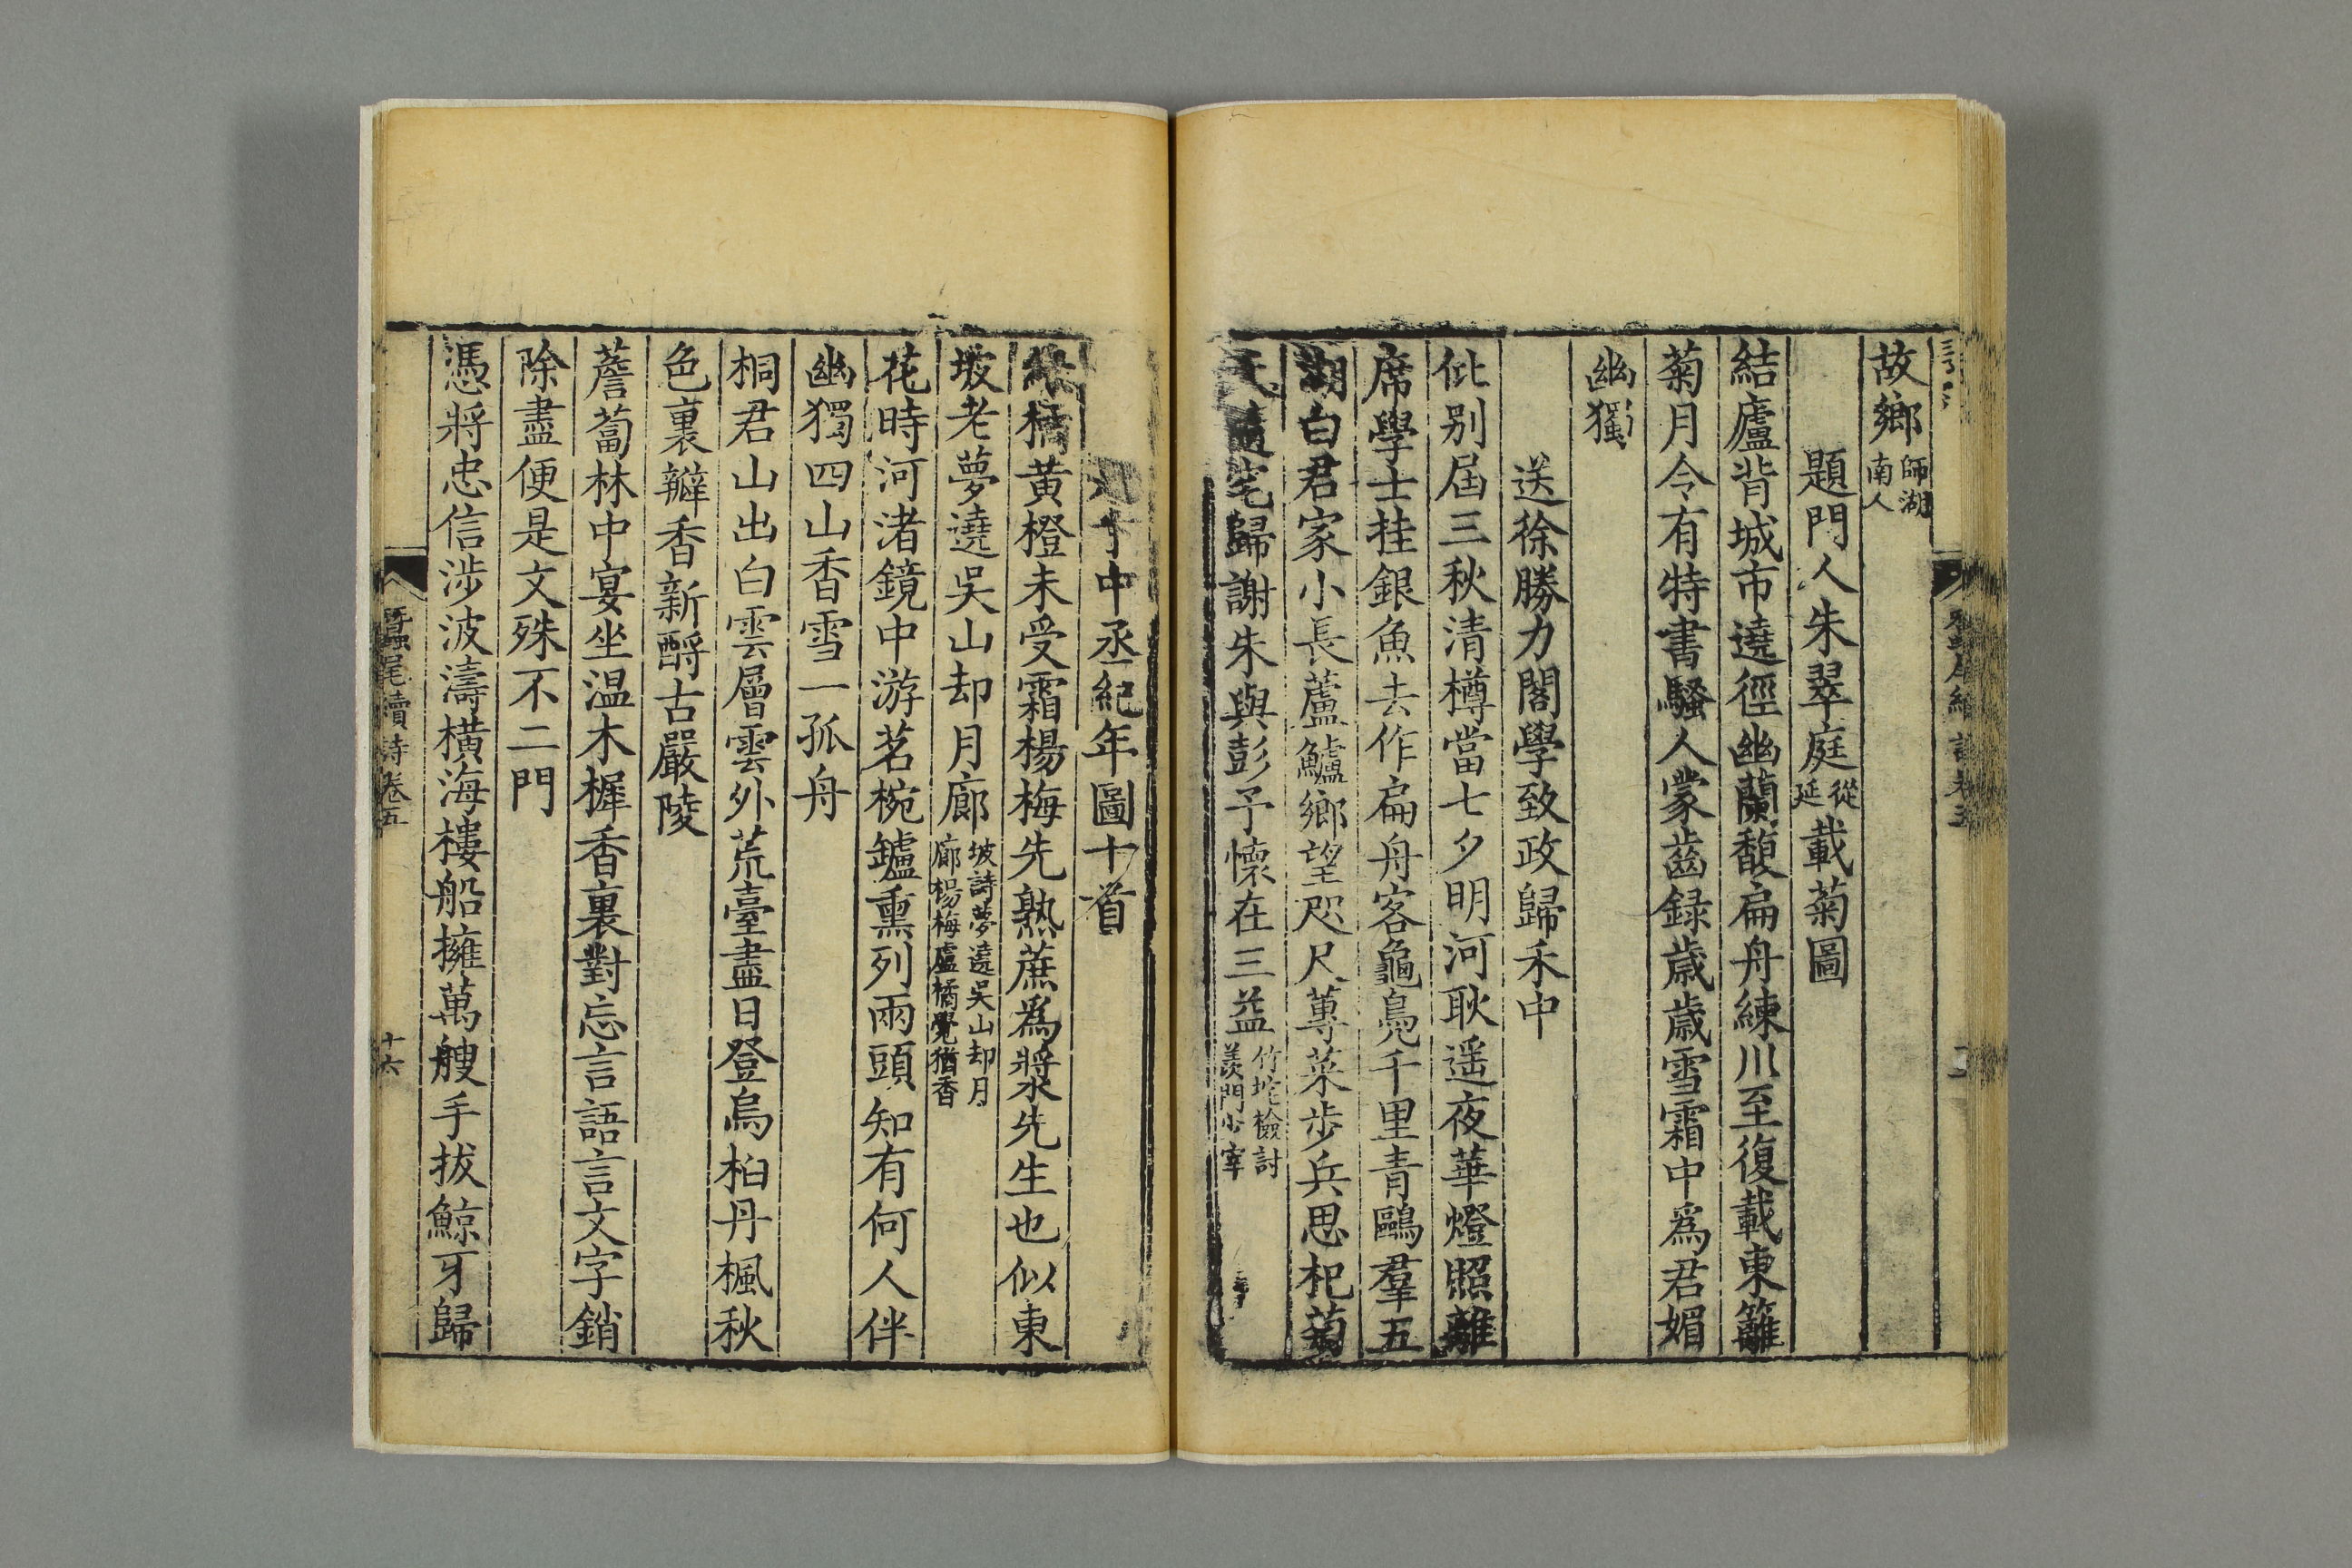 故鄉師湖南人
題門人朱翠庭從延載菊圖
結廬背城市遶徑幽蘭馥扁舟練川至復載東籬
菊月令有特書騷人蒙齒録歲歲雪霜中爲君媚
幽獨
送徐勝力閣學致政歸禾中
仳别屆三秋清樽當七夕明河耿遥夜華燈照離
席學士挂銀魚去作扁舟客龜鳧千里青鷗羣五
湖白君家小長蘆鱸鄉望咫尺蓴菜步兵思杞菊
天隨宅歸謝朱與彭予懷在三益竹垞檢討羡門少宰
中丞紀年圖十首
橘黄橙未受霜楊梅先熟蔗爲漿先生也似東
坡老夢遶吳山却月廊坡詩夢遶吳山却月廊楊梅盧橘覺猶香
花時河渚鏡中游茗椀鑪熏列兩頭知有何人伴
幽獨四山香雪一孤舟
桐君山出白雲層雲外荒臺盡日登烏桕丹楓秋
色裏瓣香新酹古嚴陵
薝蔔林中宴坐温木樨香裏對忘言語言文字銷
除盡便是文殊不二門
憑將忠信涉波濤横海樓船擁萬艘手拔鯨牙歸
蠶尾續詩卷五
十六